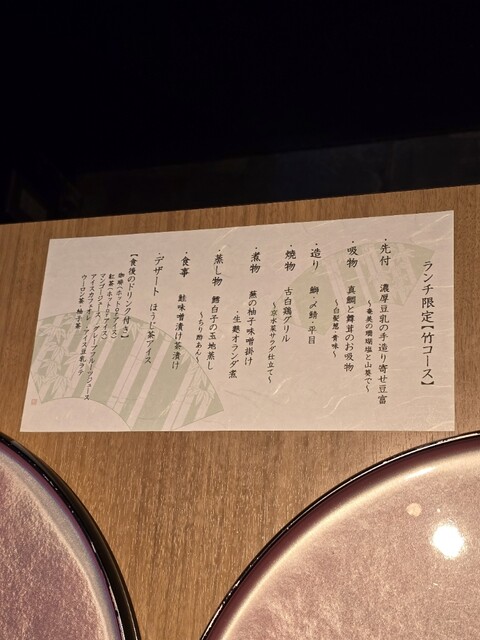 ランチ限定【竹コース】
・先付　濃厚豆乳の手造り寄せ豆富
～奄美の珊瑚塩と山葵で～
・吸物　真鯛と舞茸のお吸物
～白髪葱・青味～
・造り　鰤・〆鯖・平目
・焼物　古白鶏グリル
～京水菜サラダ仕立て～
・煮物　蕪の柚子味噌掛け
～生麩オランダ煮
・蒸し物　鱈白子の玉地蒸し
～ちり酢あん～
・食事　鮭味噌漬け茶漬け
・デザート　ほうじ茶アイス
【食後のドリンク付き】
珈琲（ホットorアイス）
紅茶（ホットorアイス）
マンゴージュース・グレープフルーツジュース
アイスカフェオレ・アイス豆乳ラテ
ウーロン茶・柚子茶